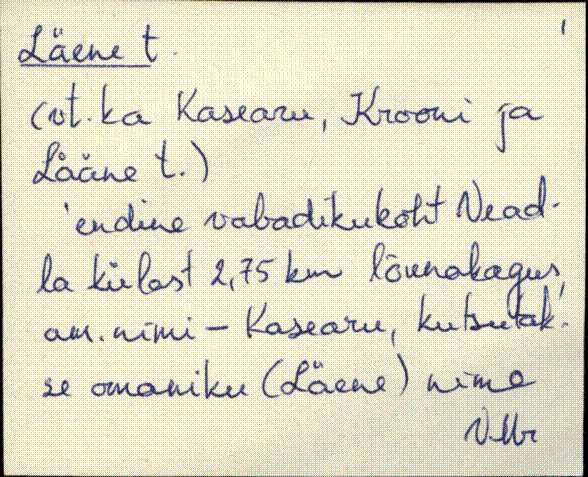 1
Läene t.
(vt. ka Kasearu, Krooni ja
Lääne t.)
endine vabadikukoht Nead-
la külast 2,75 km lõunakagus,
am. nimi - Kasearu, kutsutak-
se omaniku (Läene) nime
VMr